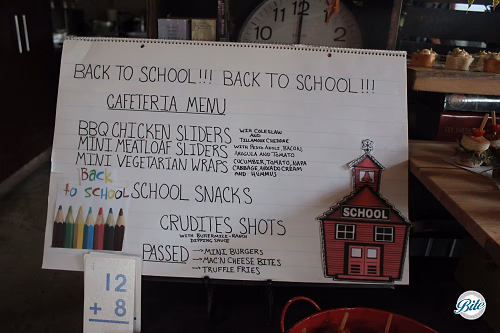 12
11
1
2
BACK TO SCHOOL!!! BACK TO SCHOOL!!!
CAFETERIA MENU
BBQ CHICKEN SLIDERS WITH COLESLAW AND TILLAMOOK CHEDDAR
MINI MEATLOAF SLIDERS WITH PESTO AIOLI, BACON, ARUGULA AND TOMATO
MINI VEGETARIAN WRAPS CUCUMBER, TOMATO, NAPA CABBAGE, AVOCADO CREAM AND HUMMUS
Back to school
SCHOOL SNACKS
CRUDITES SHOTS
WITH BUTTERMILK-RANCH DIPPING SAUCE
PASSED → MINI BURGERS
→ MAC'N CHEESE BITES
→ TRUFFLE FRIES
SCHOOL
12
+ 8
Bite